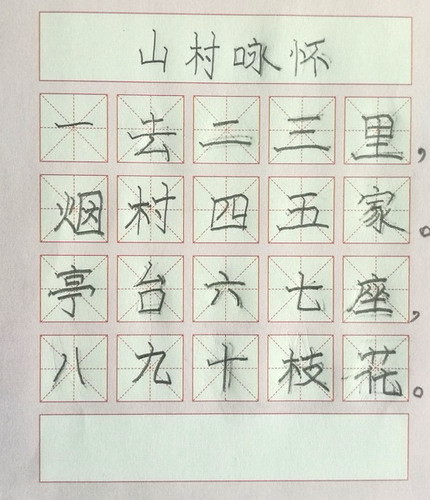 山村咏怀
一去二三里，
烟村四五家。
亭台六七座，
八九十枝花。